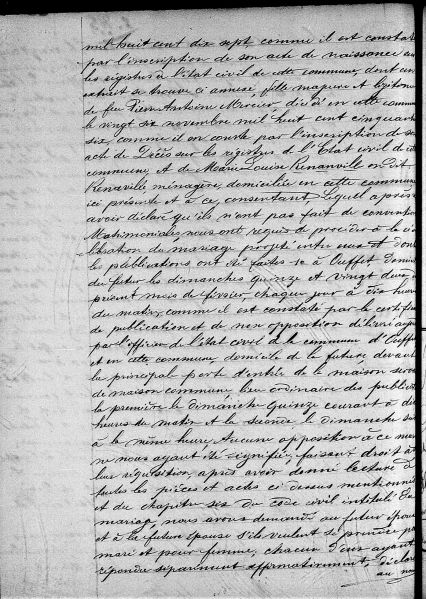 mil huit cent dix sept comme il est constaté
par l'inscription de son acte de naissance sur
les régistres à l'état civil de cette commune, dont un
extrait se trouve ci annexé, fille majeure et légitime
de feu Pierre Antoine Mercier, décédé en cette commune
le vingt six novembre mil huit cent cinquante
six, comme il en conste par l'inscription de son
acte de Décès sur les régistres de l'Etat civil de cette
commune, et de Marie Louise Renanville ou Dit
Renaville ménagère, domiciliée en cette commune
ici présente et à ce, consentant. Lequel après
avoir déclaré qu'ils n'ont pas fait de convention
Matrimoniales, nous ont requis de procéder à la cé
lébration du mariage projeté entre eux et dont
les publications ont été faites à Ouffet domicile
du futur les dimanches quinze et vingt deux du
présent mois de février, chaque jour à dix heures
du matin, comme il est constaté par le certificat
de publication et de non opposition délivré
par l'officier de l'état civil de la commune d'Ouffet
et en cette commune, domicile de la future devant
la principal porte d'entrée de la maison servant
de maison commune lieu ordinaire des publications
la première le dimanche quinze courant à dix
heures du matin et la seconde le dimanche
à la même heure. Aucune opposition à ce mariage
ne nous ayant été signifiée, faisant droit à
leur réquisition, après avoir donné lecture de
toutes les pièces et actes ci dessus mentionnés
et du chapitre six du code civil intitulé Du
mariage, nous avons demandé au futur époux
et à la future épouse s'ils veulent se prendre pour
mari et pour femme, chacun d'eux ayant
répondu séparément affirmativement, déclarons
au nom